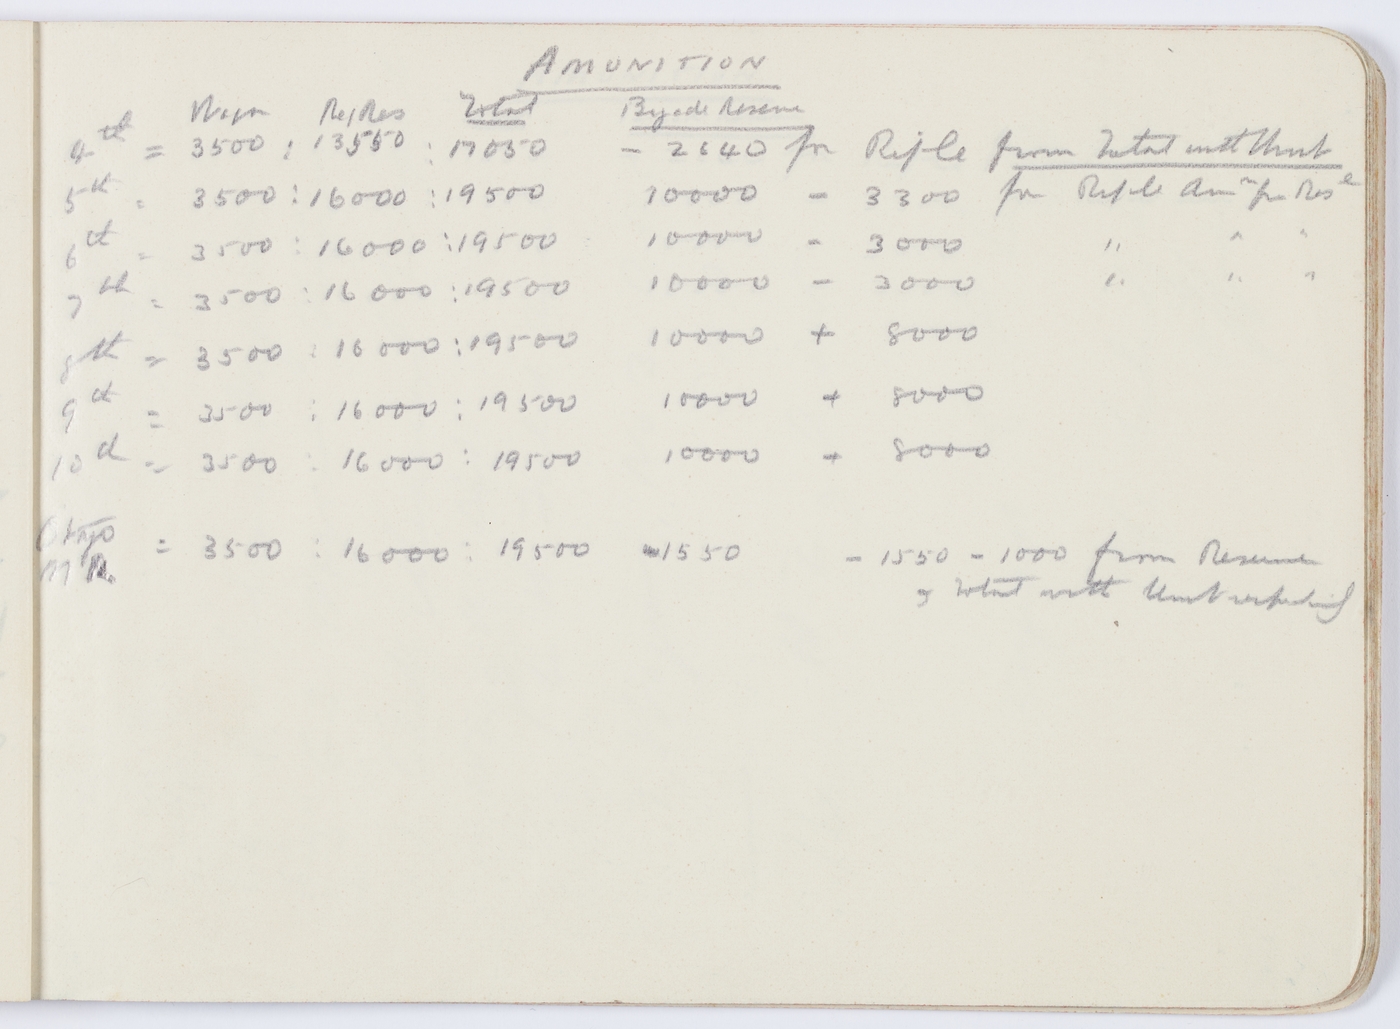 AMUNITION
Regtl Res Total Brigade Reserve
4th = 3500 : 13550 : 17050 - 2640 for Rifle from Total with Unit
5th = 3500 : 16000 : 19500 10000 - 3300 for Rifle Amn for Rese
6th = 3500 : 16000 : 19500 10000 - 3000 " " "
7th = 3500 : 16000 : 19500 10000 - 3000 " " "
8th = 3500 : 16000 : 19500 10000 + 8000
9th = 3500 : 16000 : 19500 10000 + 8000
10th = 3500 : 16000 : 19500 10000 + 8000
Otago
M R. = 3500 : 16000 : 19500 -1550 - 1550 - 1000 from Reserve
& Total with Unit respectively